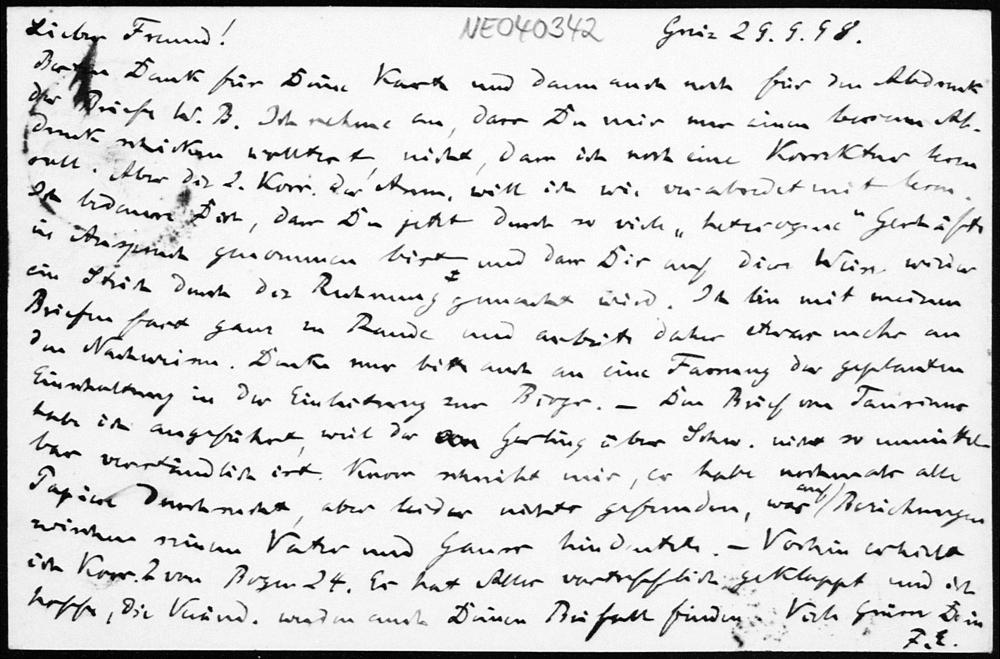 Lieber Freund! NE040342 Greiz 29.9.98.
Besten Dank für Deine Karte und dann auch noch für den Abdruck
der Briefe W. B. Ich nehme an, dass Du mir nur einen besseren Ab-
druck schicken wolltest, nicht, dass ich noch eine Korrektur lesen
soll. Aber die 2. Korr. der Anm. will ich wie verabredet mit lesen.
Ich bedaure Dich, dass Du jetzt durch so viele „heterogene" Geschäfte
in Anspruch genommen bist und dass Dir auf diese Weise wieder
ein Strich durch die Rechnung gemacht wird. Ich bin mit meinen
Briefen fast ganz zu Rande und arbeite daher etwas mehr an
den Nachweisen. Denke nur bitte auch an eine Fassung der geplanten
Einschaltung in der Einleitung zur Biogr. — Den Brief von Taurinus
habe ich angeführt, weil der von Gerling über Schw. nicht so unmittel-
bar verständlich ist. Knorr schreibt mir, er habe nochmals alle
Papiere durchsucht, aber leider nichts gefunden, was auf Beziehungen
zwischen seinem Vater und Gauss hindeutete. — Vorhin erhielt
ich Korr. 2 von Bogen 24. Es hat Alles vortrefflich geklappt und ich
hoffe, die Veränd. werden auch Deinen Beifall finden. Viele Grüsse Dein
F. E.